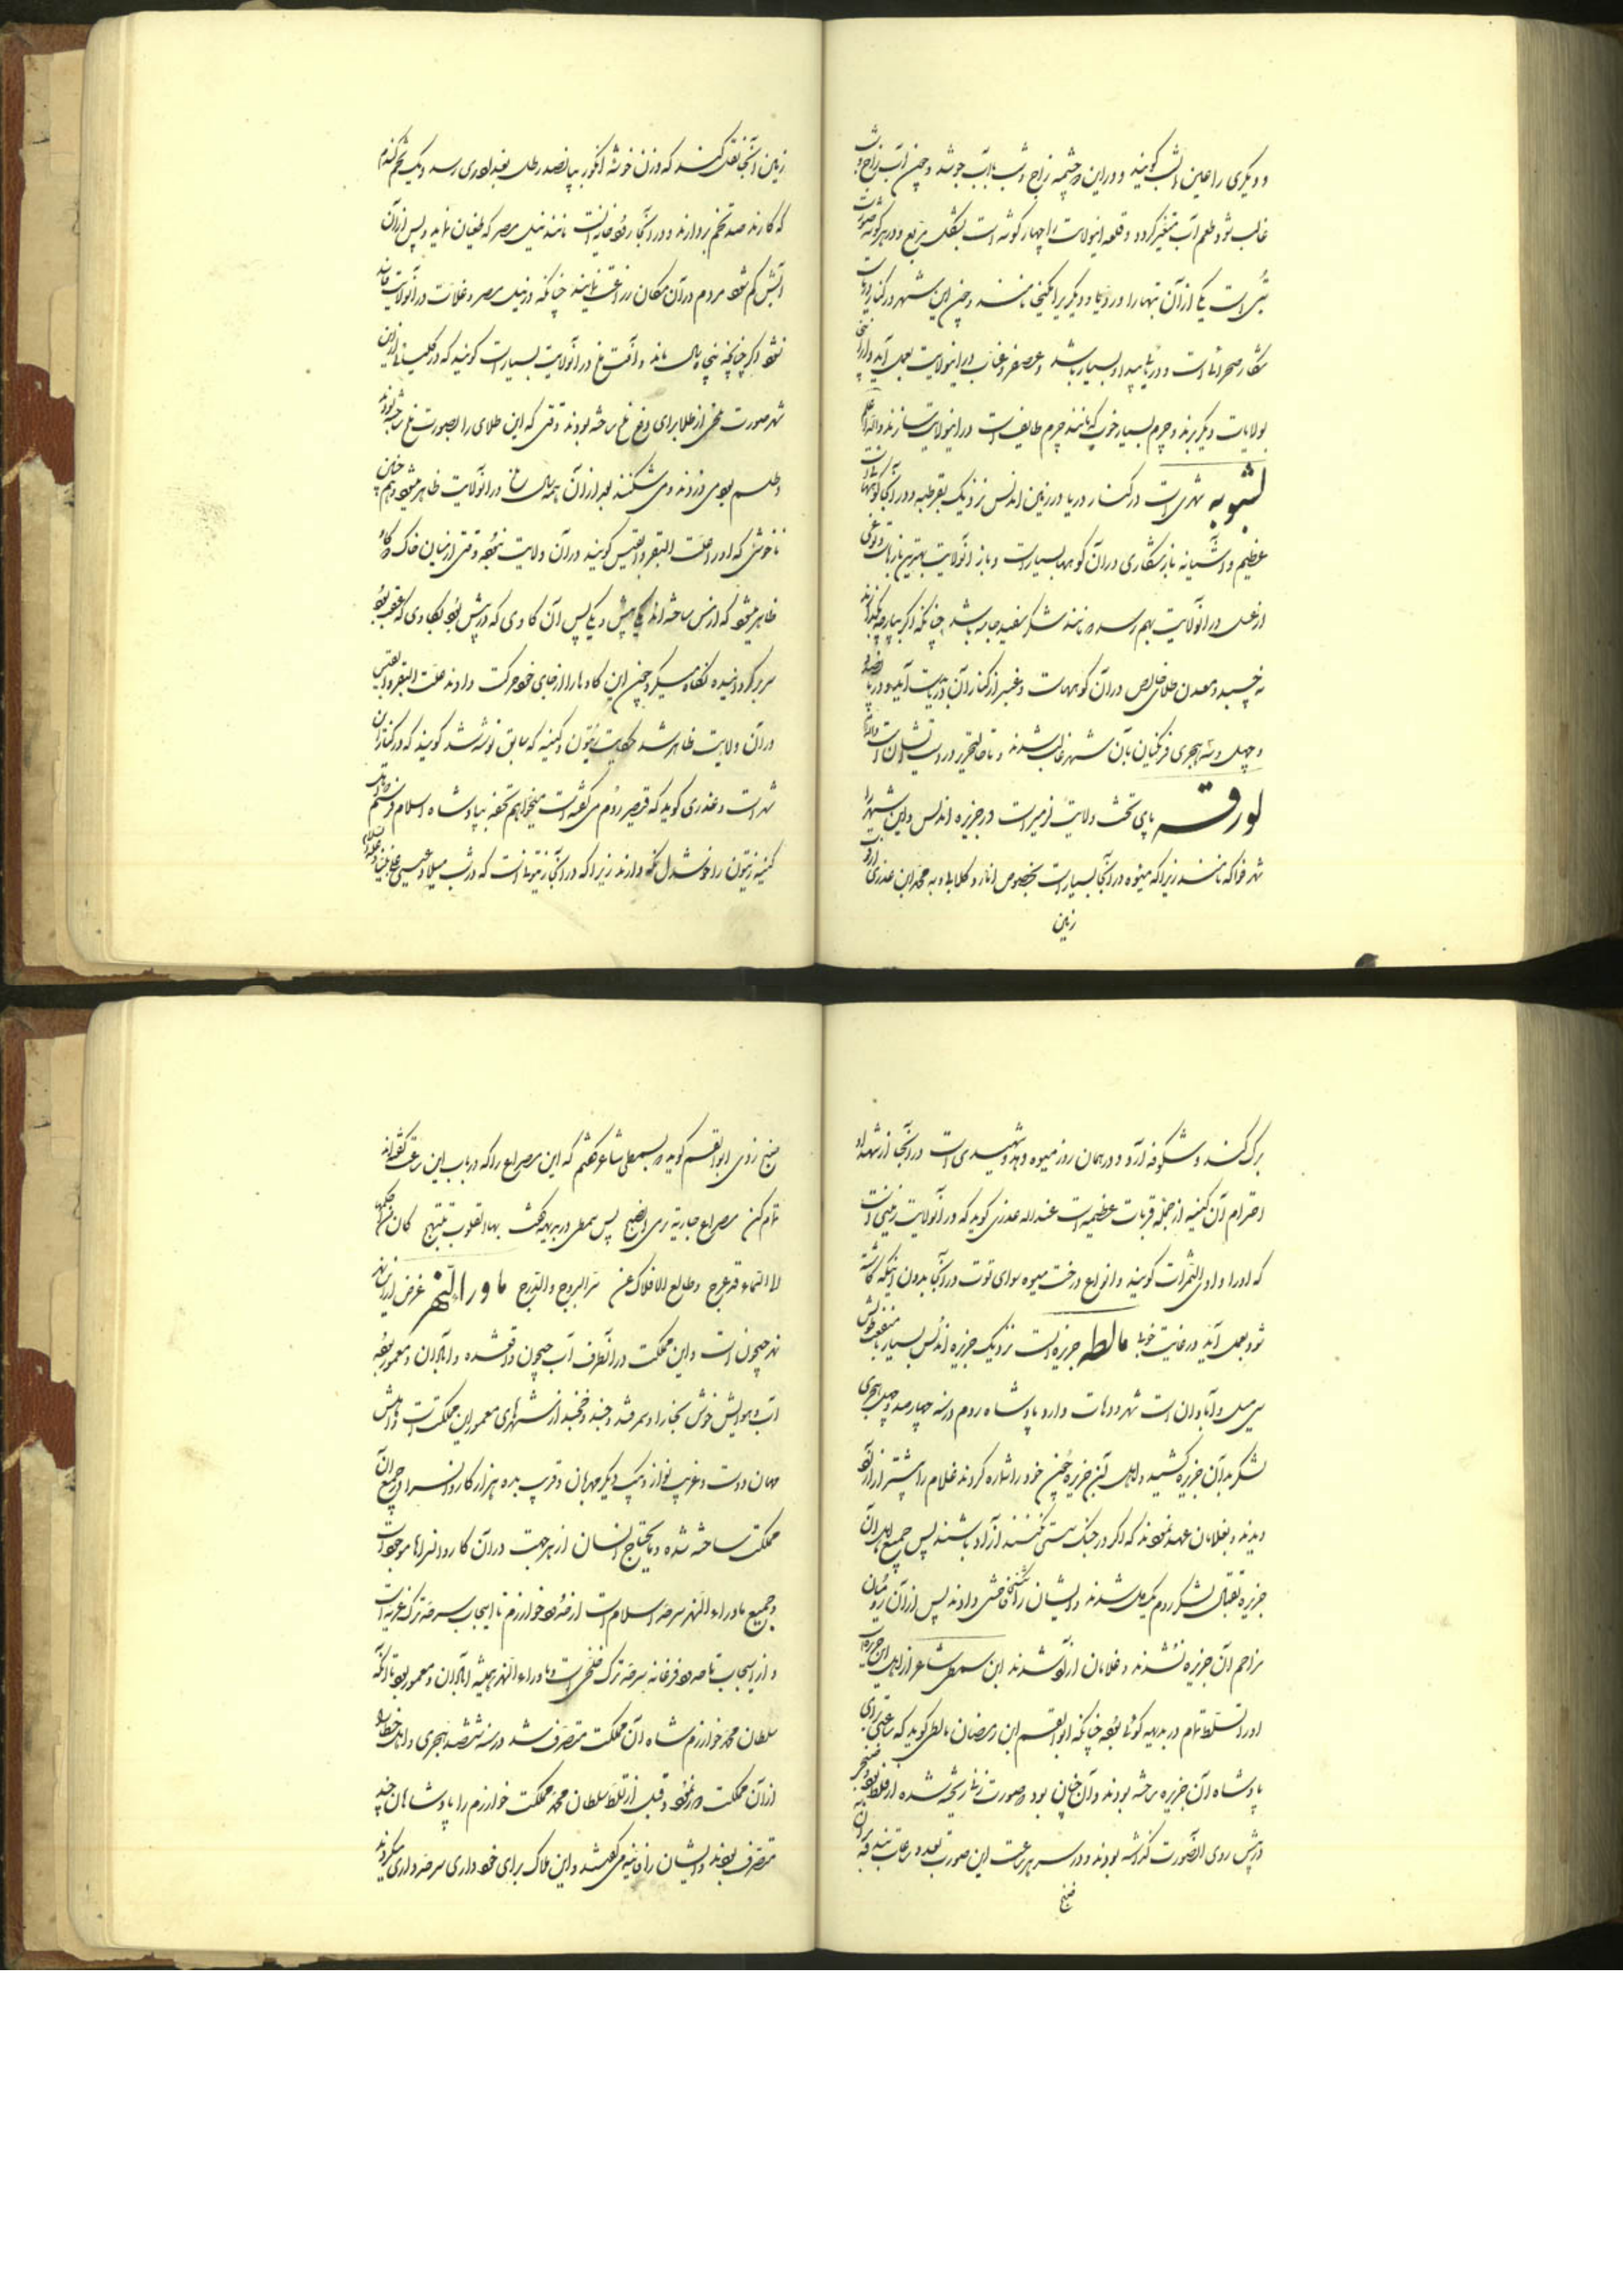 و دیگری را عین الشب کویند و در این دو چشمه زاج و شب با آب جوشد و چون آب زاج و شب
غالب شود طعم آب متغیر کردد و قلعه اینولایت را چهار کوشه است بشکل مربع و در هر کوشه صورت
بتی است یکی از آن بتها را وردیا و دیکریرا نامند و چون این شهر در کنار دریاست
شکار صحرا است و در دریا صید او بسیار باشد و عصفر و عناب در اینولایت بعمل آید و از آنجا
بولایات دیکر برند و چرم بسیار خوب که مانند چرم طایف است در اینولایت سازند والله اعلم
لشبونه شهری است در کنار دریا در زمین اندلس نزدیک بقرطبه و در آنجا کوههای
عظیم و آشیانه باز شکاری در آن کوهها بسیار است و باز آنولایت بهترین بازهاست و نوعی
از عسل در آنولایت بهم رسد مانند شکر سفید جامد باشد چنانکه اکر بپارچه بکذارند
نه چسبد و معدن طلای خالص در آن کوههاست و عنبر از کنار آن دریا بدست آید و در پانصد
و چهل و سه هجری فرنکیان بآن شهر غالب شدند و تا حال تحریر در دست ایشان است
لورقه پای تخت ولایت تدمیر است در جزیره اندلس و این شهر را
شهر فواکه نامند زیرا که میوه در آنجا بسیار است بخصوص انار و کلابی و به محمد ابن عذری از
زمین
زمین آنجا نقل کند که وزن خوشه انکور بپانصد رطل بغدادی رسد و یک تخم کندم
که کارند صد تخم بردارند و در آنجا رودخانه است مانند نیل مصر که طغیان نماید و پس از آن
آبش کم شود مردم در آن مکان زراعت نمایند چنانکه در نیل مصر و غلات در آنولایت فاسد
نشود اکر چنانچه پنجاه سال ماند و آفت ملخ در آنولایت بسیار است کویند که در کلیسای این
شهر صورت ملخی از طلا برای دفع ملخ ساخته بودند وقتی که این طلای را بصورت ملخ ساخته بودند
و طلسم بود می دزدند و می شکنند بعد از آن همه سال ملخ در آنولایت ظاهر میشود و هم چنین
ناخوشی که او را علت البقر کویند در آن ولایت نبود و وقتی از میان خاک دو کاو
ظاهر میشود که از مس ساخته اند یکی پیش و یکی پس آن کاوی که در پیش بود بکاوی که عقب بود
سر بر کردانیده نکاه میکرد چون این کاوها را از جای خود حرکت دادند علت البقر
در آن ولایت ظاهر شد حکایت زیتون و کنیسه که سابق نوشته شد کویند که در کنار این
شهر است و عذری کوید که قیصر روم می کفته است میخواهم تحفه بپادشاه اسلام فرستم
کنیسه زیتون را خوشدل نکه دارند زیرا که در آنجا زیتونی است که در شب میلاد عیسی علی نبینا و علیه السلام
برک کند و شکوفه آرد و در همان روز میوه دهد و شهیدی است در آنجا از شهداء
احترام آن کنیسه از جمله قربات عظیمه است عبدالله عذری کوید که در آنولایت زمینی است
که او را وادی الثمرات کویند و انواع درخت میوه سوای توت در آنجا بدون اینکه کاشته
شود بعمل آید در غایت خوبی مالطه جزیره ایست نزدیک جزیره اندلس بسیار بامنفعت طولش
سی میل و آبادان است شهر و دهات دارد پادشاه روم در سنه چهارصد و چهل هجری
لشکر بدان جزیره کشید و اهل آن جزیره چون خود را شماره کردند غلام را بیشتر از آزاد
دیدند و بغلامان عهد نمودند که اکر در جنک سستی نکنند آزاد باشند پس جمیع اهل آن
جزیره بقتال لشکر روم یکدل شدند و ایشان را شکستی فاحش دادند پس از آن رومیان
مزاحم آن جزیره نشدند و غلامان آزاد شدند ابن سمطی شاعر از اهل این جزیره است
او را تسلط تمام در بدیهه کوئی بود چنانکه ابوالقسم ابن رمضان مالطی کوید که ساعتی برای
پادشاه آن جزیره ساخته بودند و آن چنان بود صورت زنی ریخته شده از فلز
در پیش روی آن صورت کذاشته بودند و در سر هر ساعت این صورت
صنج
صنج زدی ابوالقسم کوید بسمطی شاعر کفتم که این مصراع را که در باب این ساعت کفته اند
تمام کن مصراع جاریة ترمی الصنج پس سمطی در بدیهه کفت بها القلوب تبتهج کان من احکمها
الی السماء قد عرج وطالع الافلاک عن سر البروج والدرج ماوراء النهر غرض از این نهر
نهر جیحون است و این مملکت در آنطرف آب جیحون واقع شده و آبادان و معمور بوده
آب و هوایش خوش بخارا و سمرقند و جند و خجند از شهرهای معمور این مملکت است و اهلش
مهمان دوست و غریب نواز و بیک دیکر مهربان و قریب بده هزار کاروانسرا در جمیع آن
مملکت ساخته شده و مایحتاج انسان از هر جهت در آن کاروانسراها موجود است
و جمیع ماوراء النهر سرحد اسلام است از حدود خوارزم تا اسبیجاب سرحد ترک غزیه است
و از اسبیجاب تا حدود فرغانه سرحد ترک خلخی است و ماوراء النهر همیشه آبادان و معمور بود تا آنکه
سلطان محمد خوارزم شاه آن مملکت متصرف شد در سنه ششصد هجری و اهل خطا را
از آن مملکت دور نمود و قبل از تسلط سلطان محمد مملکت خوارزم را پادشاهان چند
متصرف بودند و ایشان را خانیه می کفتند و این ملاک برای خود داری سرحد داری میکردند